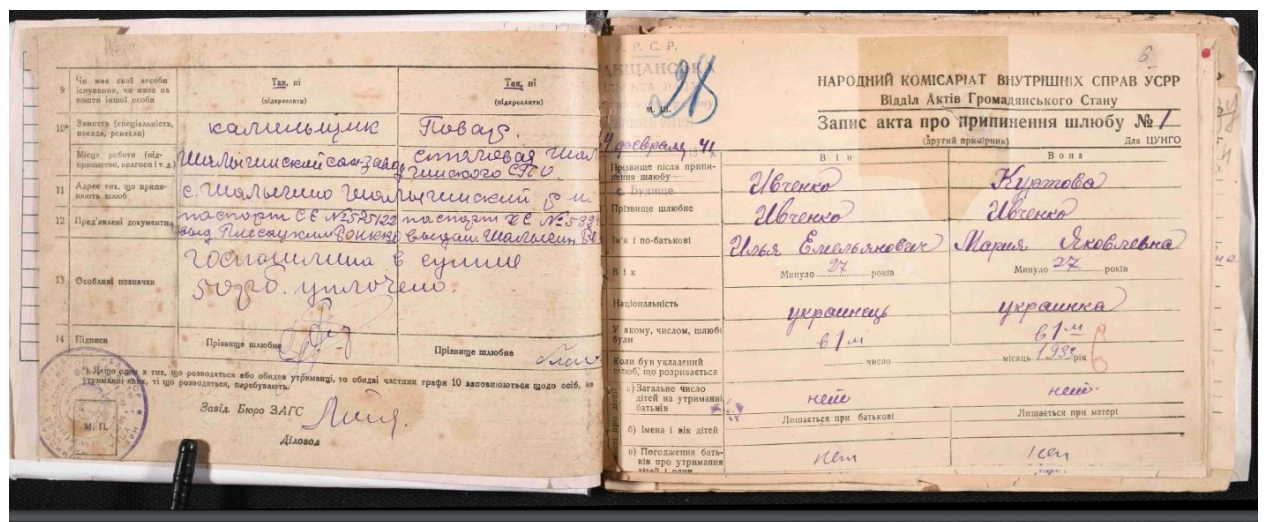 9 Чи має свої засоби існування, чи живе на кошти іншої особи
Так, ні
(підкреслити)
Так, ні
(підкреслити)
10* Заняття (спеціальність, посада, ремесло)
каменьщик
Повар.
Місце роботи (підприємство, колгосп і т. д.)
столовая
11 Адрес тих, що припиняють шлюб
с. Шалыгино
12 Пред'явлені документи
паспорт СЕ №
паспорт
13 Особливі позначки
Госпошлина в сумме
50 руб. уплочено.
14 Підписи
Прізвище шлюбне
Прізвище шлюбне
*) Якщо один з тих, що розводяться або обидва утриманці, то обидві частини графи 10 заповнюються щодо осіб, на
утриманні яких, ті що розводяться, перебувають.
Завід. Бюро ЗАГС
М. П.
Діловод
Р. С. Р.
28
6
с. Будище
НАРОДНИЙ КОМІСАРІАТ ВНУТРІШНІХ СПРАВ УСРР
Відділ Актів Громадянського Стану
Запис акта про припинення шлюбу № 1
(другий примірник)
Для ЦУНГО
4 февраля 41
Він
Вона
Прізвище після припинення шлюбу
Ивченко
Куртова
Прізвище шлюбне
Ивченко
Ивченко
Ім'я і по-батькові
Илья Емельянович
Мария Яковлевна
Вік
Минуло 27 років
Минуло 27 років
Національність
украинец
украинка
У якому, числом, шлюбі були
в 1м
в 1м
Коли був укладений шлюб, що розривається
число
місяць
рік
а) Загальне число дітей на утриманні батьків
нет
нет
Лишається при батькові
Лишається при матері
б) Імена і вік дітей
в) Погодження батьків про утримання
нет
нет